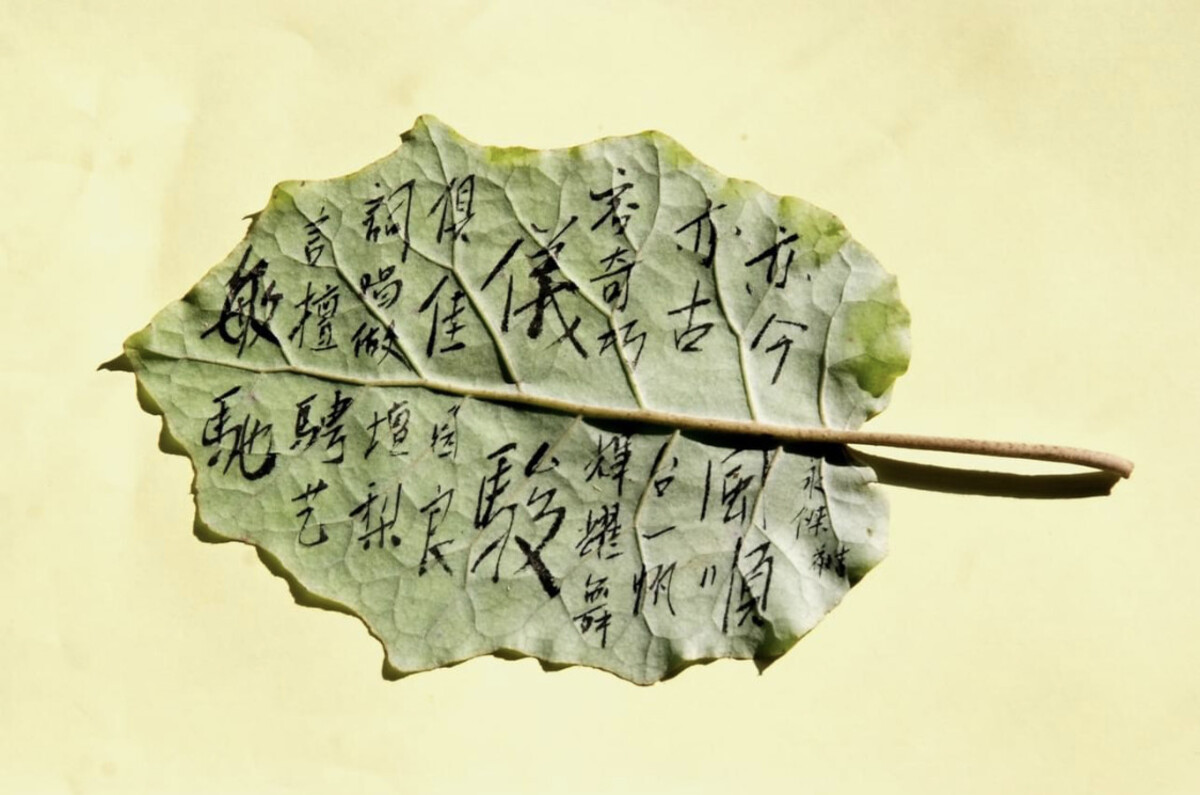 敏
言擅
詞唱做
俱佳
儀
容奇巧
亦古
亦今
馳
騁艺
壇梨
園良
駿
輝耀舞
台一帆
風順
永傑